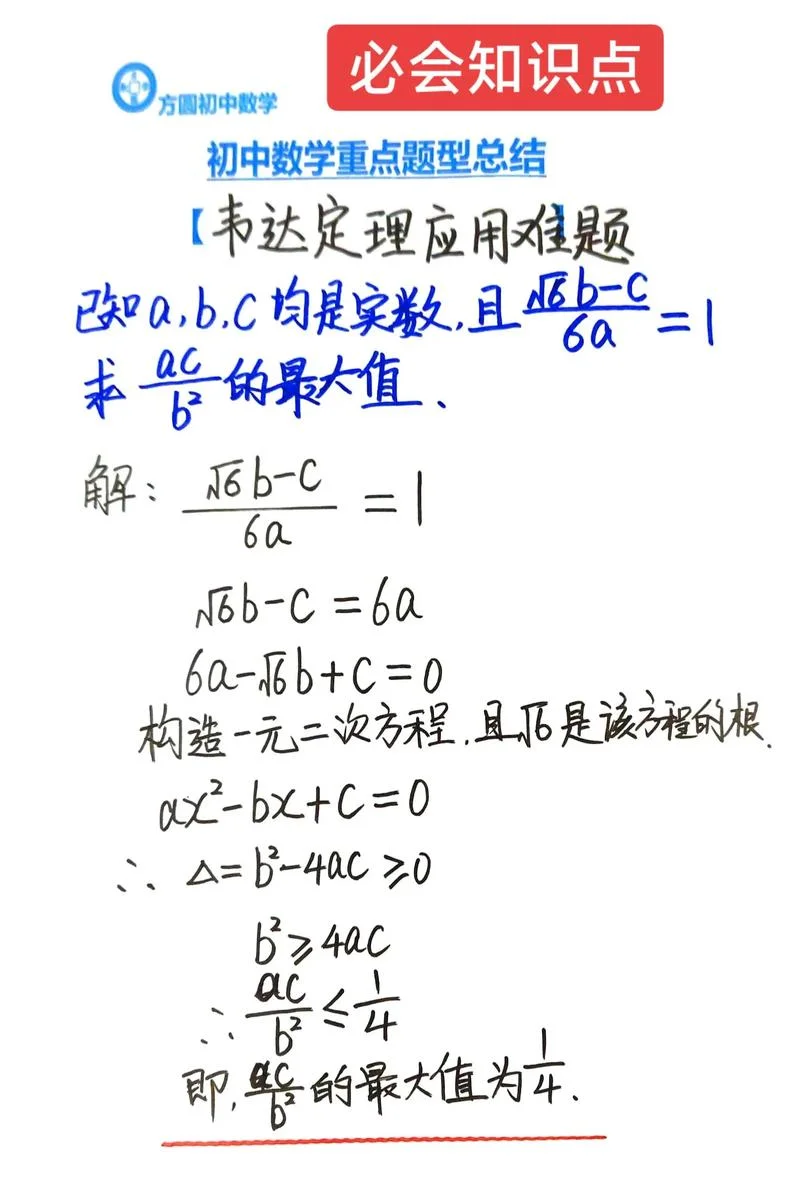 必会知识点
方圆初中数学
初中数学重点题型总结
【韦达定理应用难题
已知a,b,c均是实数,且(√6b-c)/(6a)=1
求 ac/b² 的最大值.
解: (√6b-c)/(6a)=1
√6b-c=6a
6a-√6b+c=0
构造一元二次方程,且√6是该方程的根.
ax²-bx+c=0
∴ △=b²-4ac≥0
b²≥4ac
∴ ac/b²≤1/4
即,ac/b²的最大值为1/4.